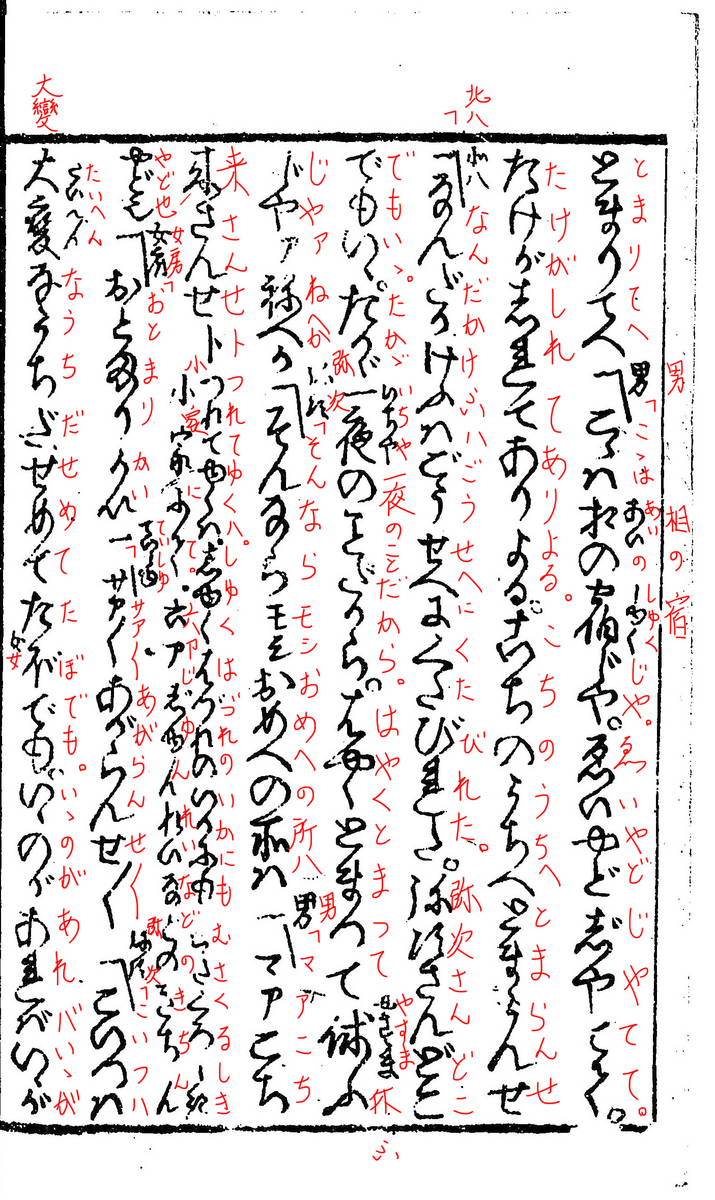 とまりてへ 男「こゝはあいのしゆくじや。ゑいやどじやてて。
相の宿
たけがしれてありよる。こちのうちへとまらんせ
北八「なんだかけふハごうせへにくたびれた。弥次さんどこ
でもいゝ。たかゞいちや一夜のことだから。はやくとまつてやすま休ふ
じやアねへか 弥次「そんならモシおめへの所ハ 男「マアこち
来さんせトつれてゆくハ。しゆくはづれのいかにもむさくるしき
小家にて。六アじゆんれいなどのきちん
やど也 女房「おとまりかい ていしゆ「サア〳〵あがらんせ〳〵 弥次「こいつハ
大變 たいへんなうちだせめてたぼでも。いゝのがあれバいゝが